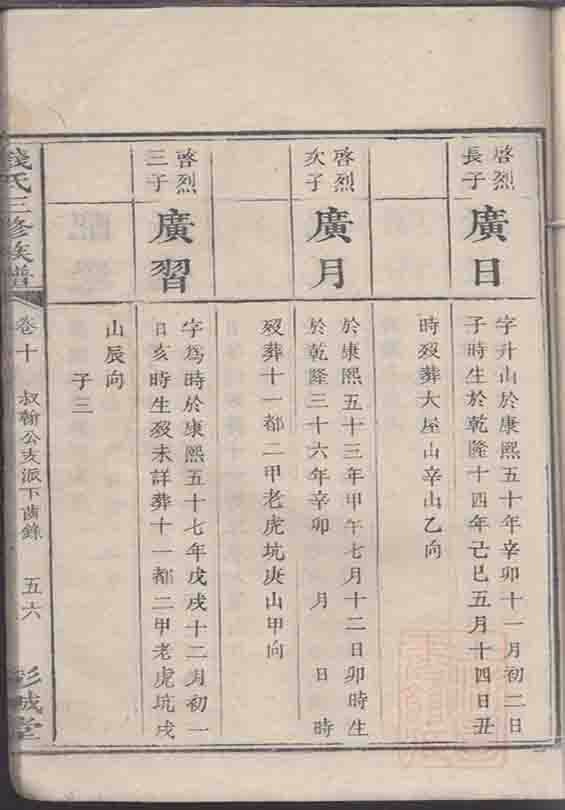 啓烈
長子
廣日
字升山於康熙五十年辛卯十一月初二日
子時生於乾隆十四年己巳五月十四日丑
時歿葬大屋山辛山乙向
啓烈
次子
廣月
於康熙五十三年甲午七月十二日卯時生
於乾隆三十六年辛卯 月 日 時
歿葬十一都二甲老虎坑庚山甲向
啓烈
三子
廣習
字爲時於康熙五十七年戊戌十二月初一
日亥時生歿未詳葬十一都二甲老虎坑戌
山辰向
子三
錢氏三修族譜
卷十
叔翰公支派下齒錄
五六
彭城堂